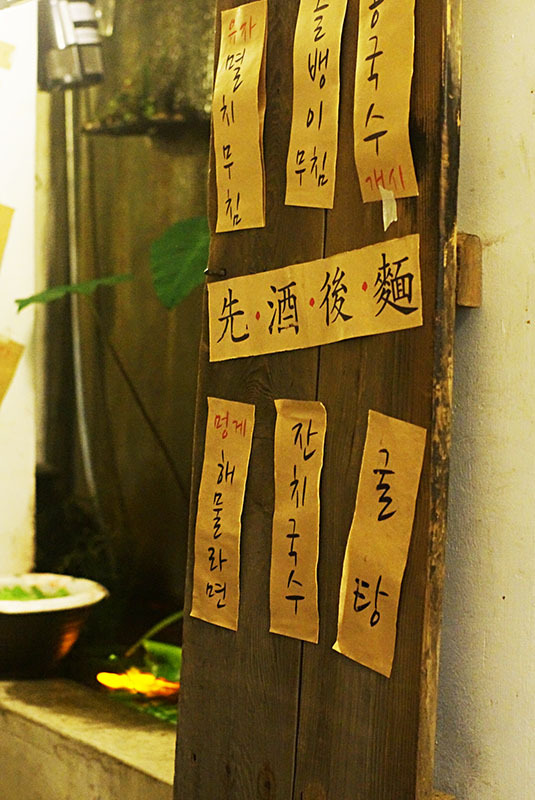 유자
멸치무침
골뱅이
무침
콩국수
개시
先·酒·後·麵
멍게
해물라면
잔치국수
굴탕